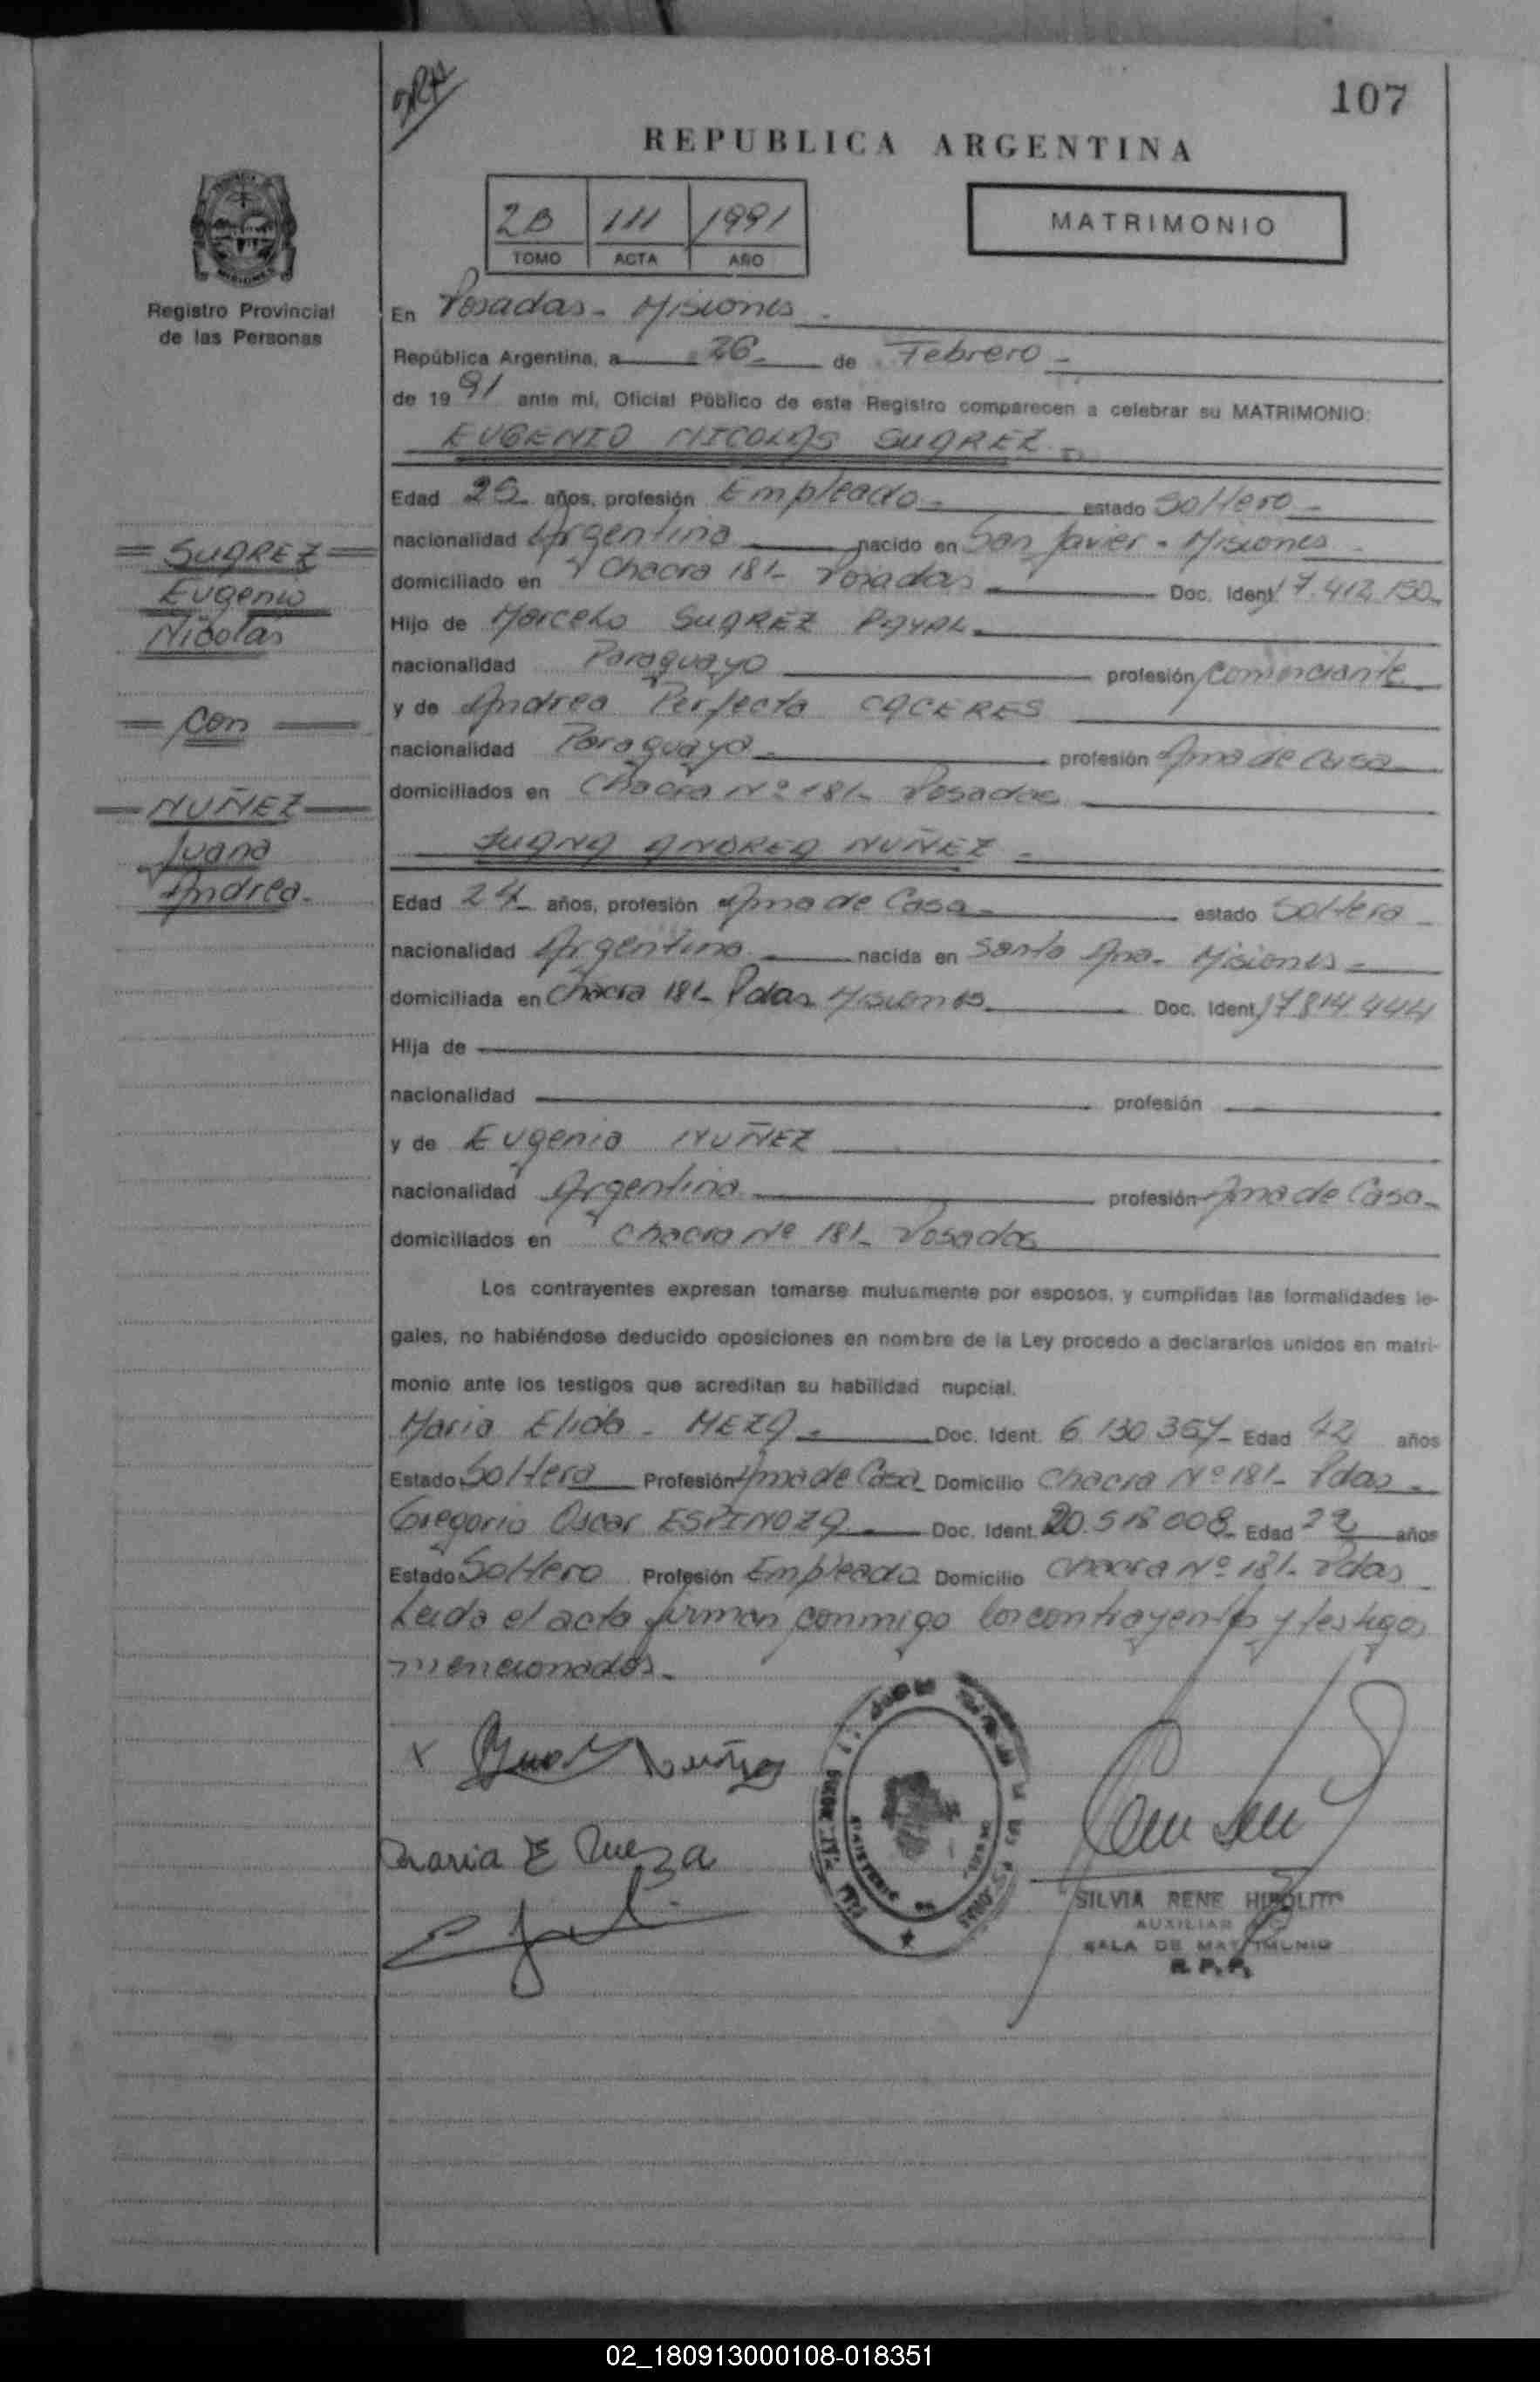 107
REPUBLICA ARGENTINA
2B 111 1991
TOMO ACTA AÑO
MATRIMONIO
Registro Provincial
de las Personas
En Posadas - Misiones -
República Argentina, a 26 - de Febrero -
de 1991 ante mí, Oficial Público de este Registro comparecen a celebrar su MATRIMONIO:
EUGENIO NICOLAS SUAREZ -
Edad 25 años, profesión Empleado - estado Soltero -
nacionalidad Argentina nacido en San Javier - Misiones -
domiciliado en Chacra 181 - Posadas - Doc. Ident. 17.412.150 -
Hijo de Marcelo SUAREZ PAYAL -
nacionalidad Paraguayo profesión Comerciante
y de Andrea Perfecta CACERES
nacionalidad Paraguaya - profesión Ama de Casa
domiciliados en Chacra Nº 181 - Posadas
JUANA ANDREA NUÑEZ -
Edad 24 - años, profesión Ama de Casa - estado Soltera -
nacionalidad Argentina - nacida en Santa Ana - Misiones -
domiciliada en Chacra 181 - Pdas Misiones Doc. Ident. 17.814.444
Hija de
nacionalidad profesión
y de Eugenia NUÑEZ
nacionalidad Argentina profesión Ama de Casa -
domiciliados en Chacra Nº 181 - Posadas
Los contrayentes expresan tomarse mutuamente por esposos, y cumplidas las formalidades le-
gales, no habiéndose deducido oposiciones en nombre de la Ley procedo a declararlos unidos en matri-
monio ante los testigos que acreditan su habilidad nupcial.
Maria Elida - MEZA - Doc. Ident. 6.130.357 - Edad 42 años
Estado Soltera Profesión Ama de Casa Domicilio Chacra Nº 181 - Pdas -
Gregorio Oscar ESPINOZA Doc. Ident. 20.518.008 - Edad 22 años
Estado Soltero Profesión Empleado Domicilio Chacra Nº 181 - Pdas
Leida el acta firman conmigo los contrayentes y testigos
mencionados -
= SUAREZ =
Eugenio
Nicolas
= con =
= NUÑEZ =
Juana
Andrea -
x Nuñez
Maria E Meza
SILVIA RENE HIPOLITO
AUXILIAR
SALA DE MATRIMONIO
R. P. P.
02_180913000108-018351